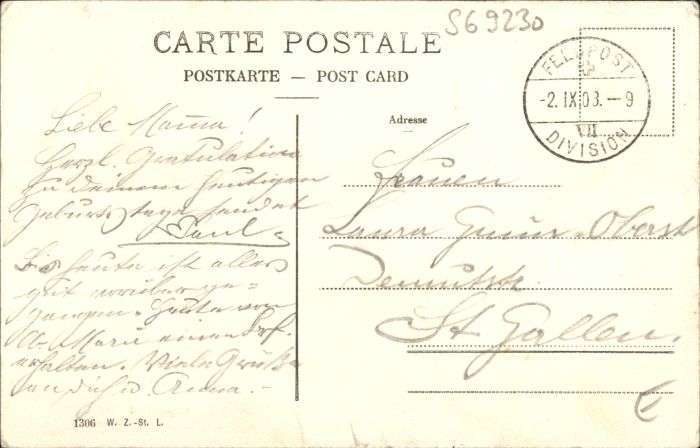 S69230
CARTE POSTALE
POSTKARTE — POST CARD
FELDPOST
-2. IX. 03. — 9
VII
DIVISION
Adresse
Liebe Mama!
Herzl. Gratulation
zu deinem heutigen
Geburtstage sendet
Paul
Bis heute ist alles
gut vorüberge-
gangen. Heute von
A. Marie einen Brf.
erhalten. Viele Grüße
an dich u. Anna. -
Frauen
Laura Oberst
St Gallen.
1306 W. Z.-St. L.